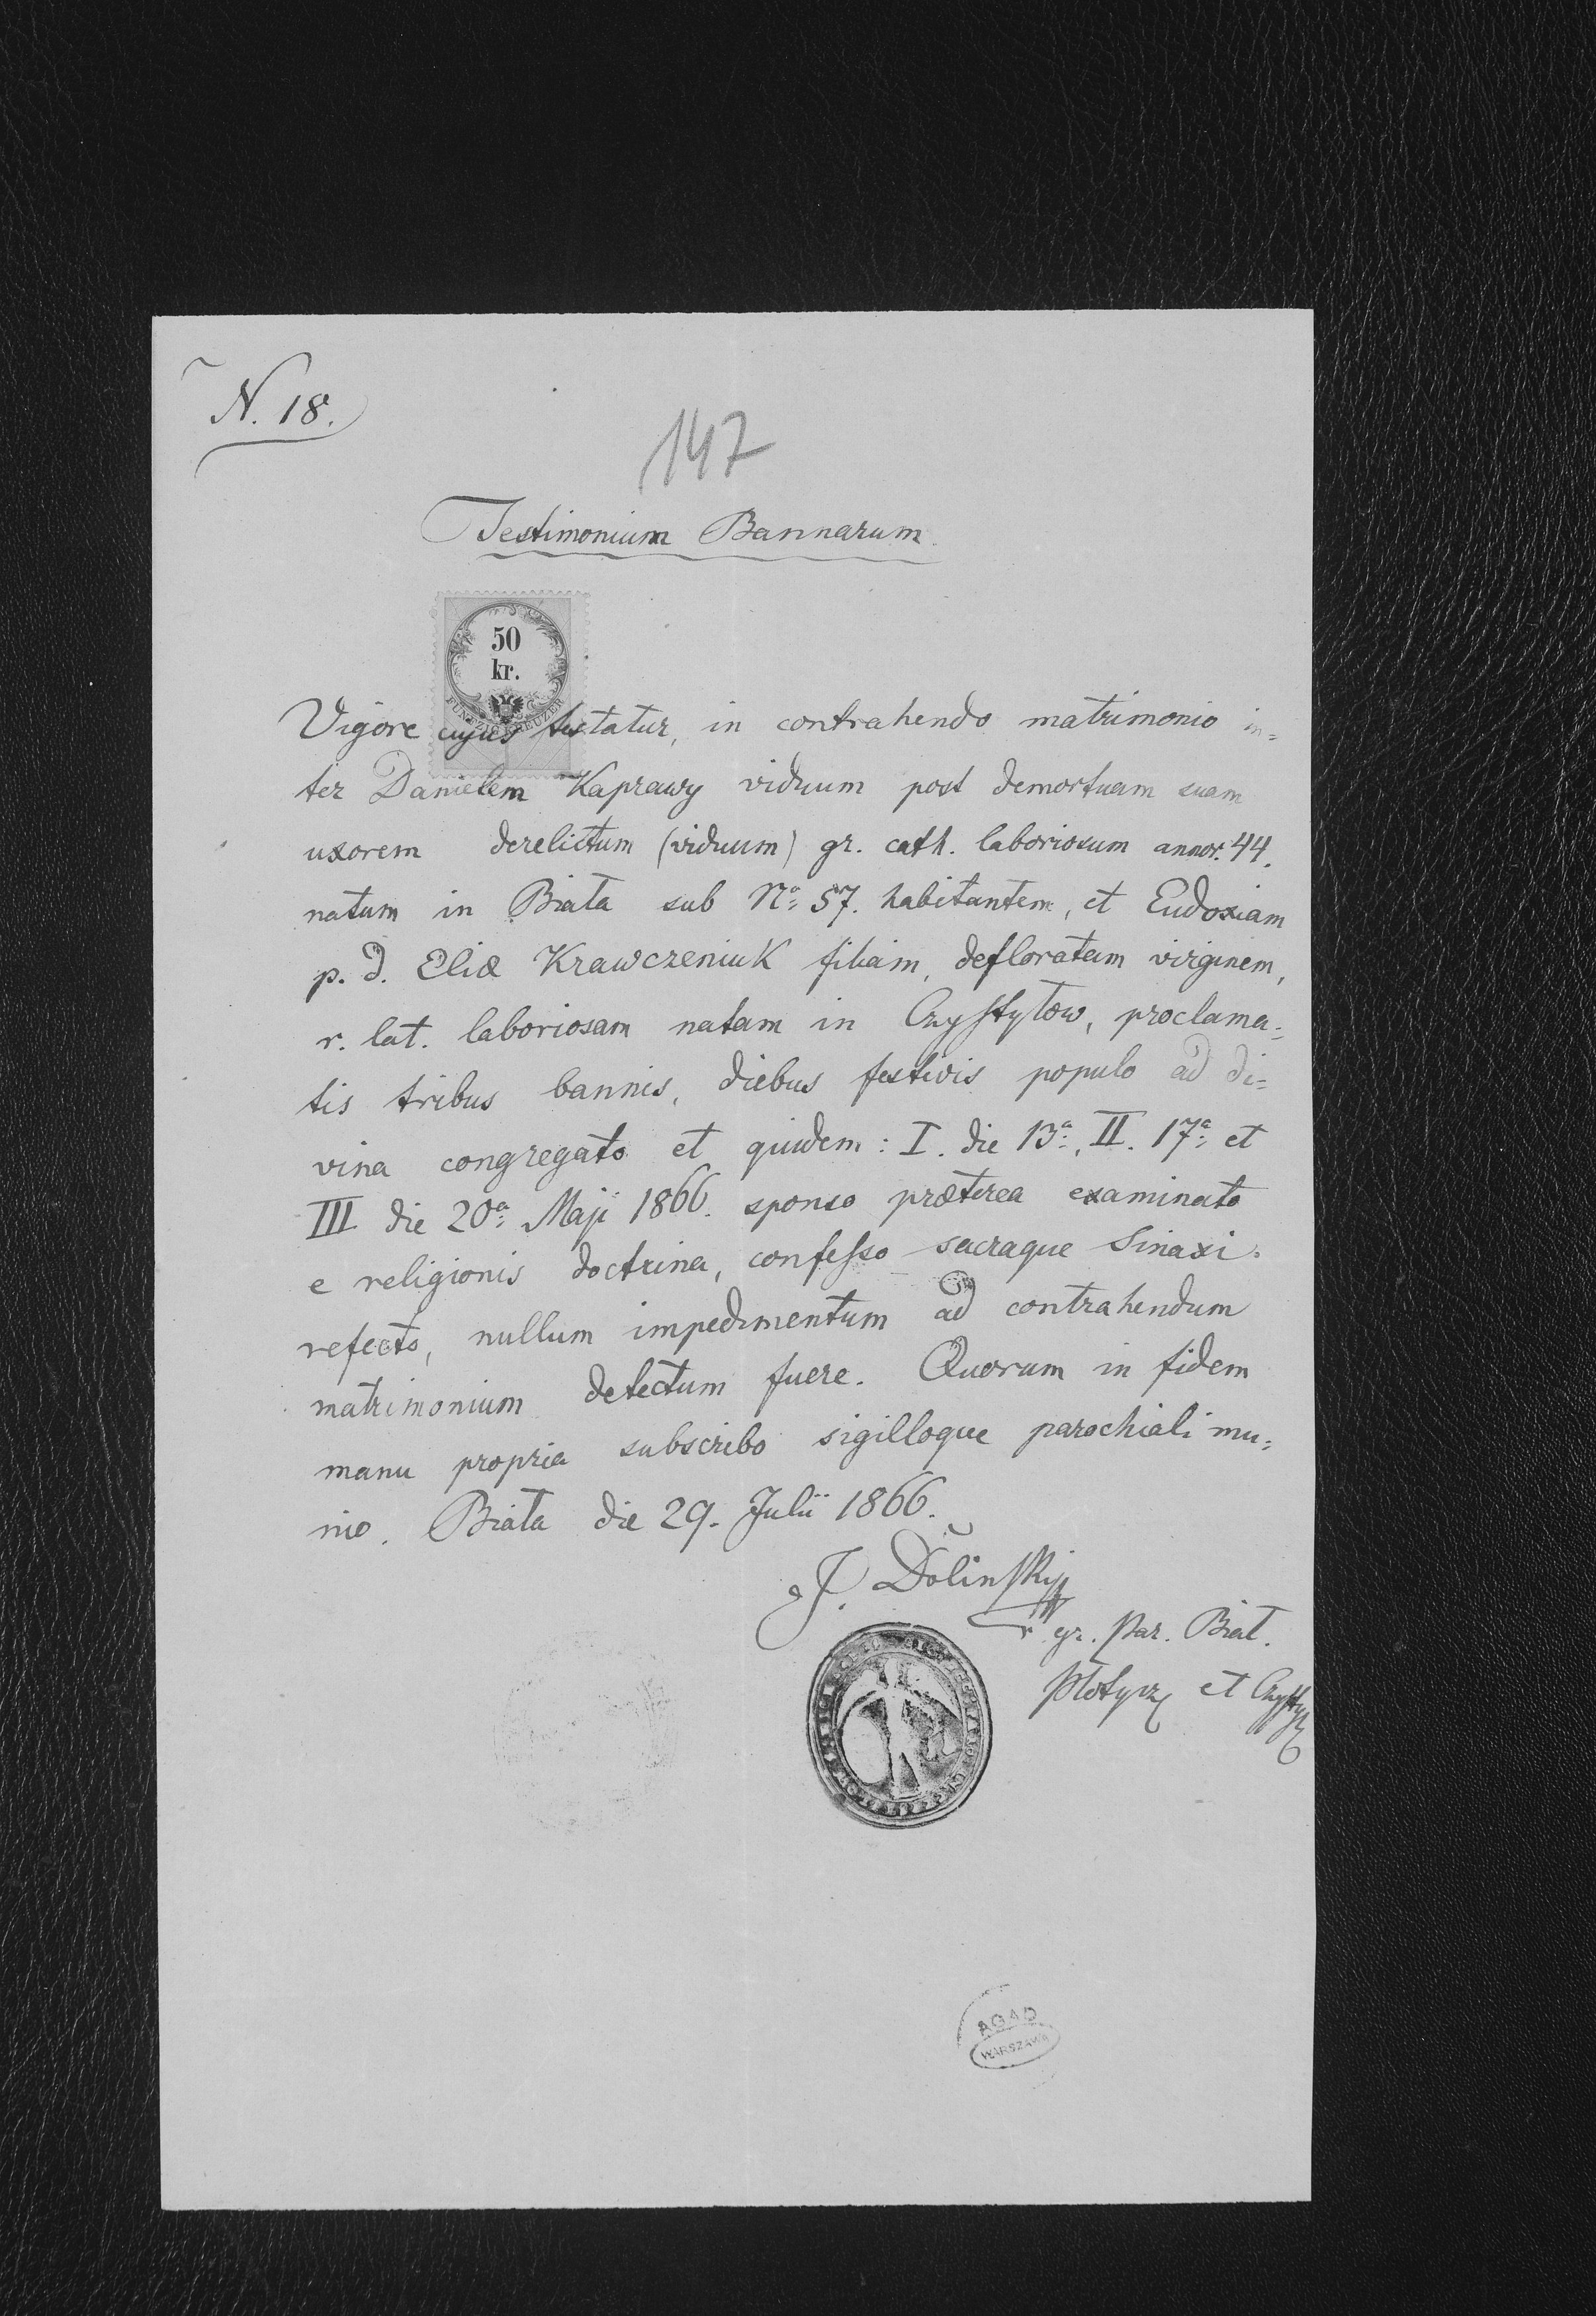 N. 18.
147
Testimonium Bannarum.
50
kr.
FÜNFZIG KREUZER
Vigore cujus testatur, in contrahendo matrimonio in=
ter Danielem Kaprawy viduum post demortuam suam
uxorem derelictum (viduum) gr. cath. laboriosum annor. 44.
natum in Biała sub No: 57. habitantem, et Eudoxiam
p. d. Eliæ Krawczeniuk filiam, defloratam virginem,
r. lat. laboriosam natam in Czystyłow, proclama=
tis tribus bannis, diebus festivis populo ad di=
vina congregato et quidem: I. die 13a:, II. 17a: et
III die 20a: Maji 1866. sponso præterea examinato
e religionis doctrina, confesso sacraque Sinaxi
refecto, nullum impedimentum ad contrahendum
matrimonium detectum fuere. Quorum in fidem
manu propria subscribo sigilloque parochiali mu=
nio. Biała die 29. Julii 1866.
J. Dolinskij
gr. Par. Biał.
Płotycz et
AGAD
WARSZAWA